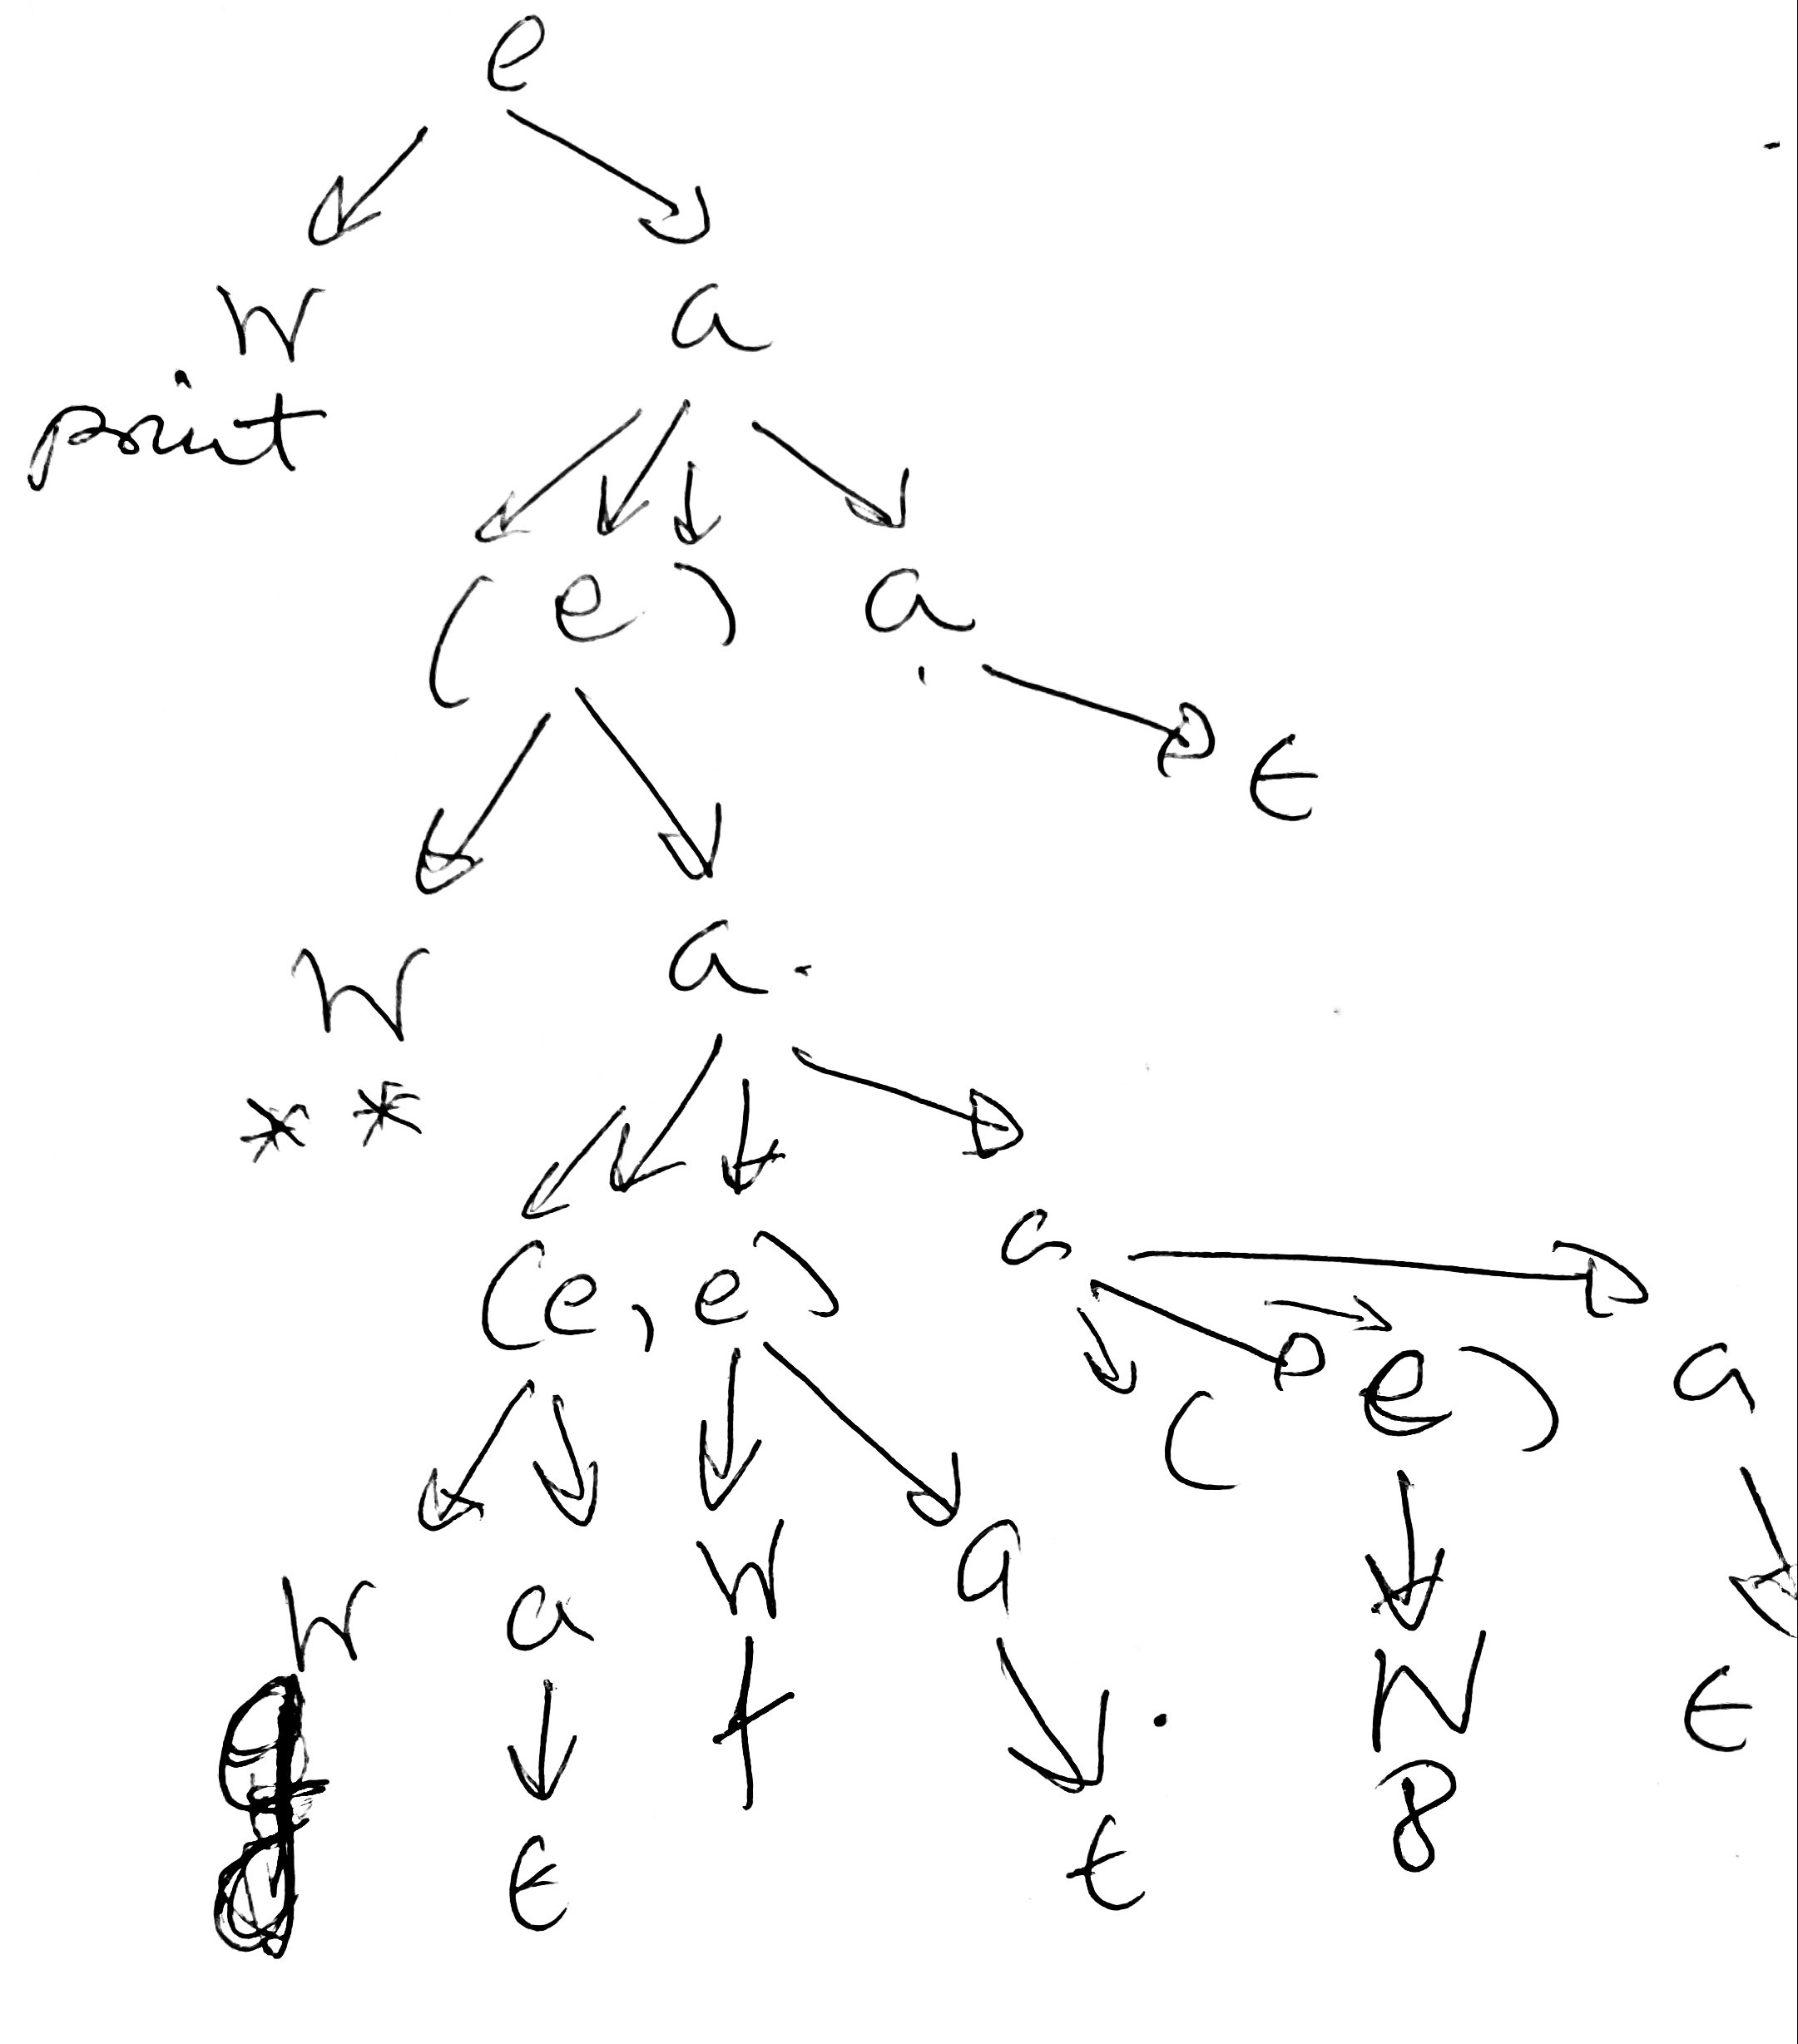 e
W a
print
( e ) a
ϵ
W a
* *
(e, e) a
( e ) a
W a W a
f N ϵ
ϵ ϵ 8